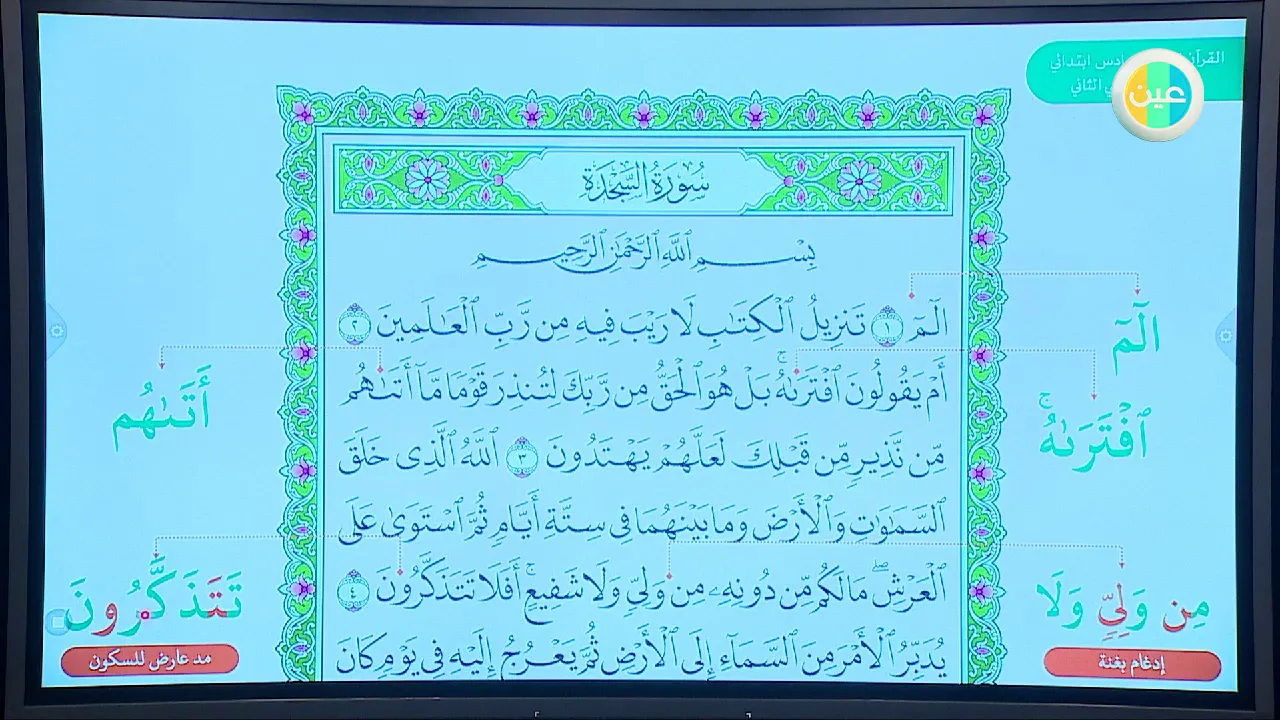 القرآن ابتدائي
الثاني
عين
سُورَةُ السَّجْدَةِ
بِسْمِ ٱللَّهِ ٱلرَّحْمَٰنِ ٱلرَّحِيمِ
الٓمٓ ١ تَنزِيلُ ٱلْكِتَٰبِ لَا رَيْبَ فِيهِ مِن رَّبِّ ٱلْعَٰلَمِينَ ٢
أَمْ يَقُولُونَ ٱفْتَرَىٰهُ ۚ بَلْ هُوَ ٱلْحَقُّ مِن رَّبِّكَ لِتُنذِرَ قَوْمًا مَّآ أَتَىٰهُم
مِّن نَّذِيرٍ مِّن قَبْلِكَ لَعَلَّهُمْ يَهْتَدُونَ ٣ ٱللَّهُ ٱلَّذِى خَلَقَ
ٱلسَّمَٰوَٰتِ وَٱلْأَرْضَ وَمَا بَيْنَهُمَا فِى سِتَّةِ أَيَّامٍ ثُمَّ ٱسْتَوَىٰ عَلَى
ٱلْعَرْشِ ۖ مَا لَكُم مِّن دُونِهِۦ مِن وَلِىٍّ وَلَا شَفِيعٍ ۚ أَفَلَا تَتَذَكَّرُونَ ٤
يُدَبِّرُ ٱلْأَمْرَ مِنَ ٱلسَّمَآءِ إِلَى ٱلْأَرْضِ ثُمَّ يَعْرُجُ إِلَيْهِ فِى يَوْمٍ كَانَ
الٓمٓ
ٱفْتَرَىٰهُ ۚ
مِن وَلِىٍّ وَلَا
إدغام بغنة
أَتَىٰهُم
تَتَذَكَّرُونَ
مد عارض للسكون